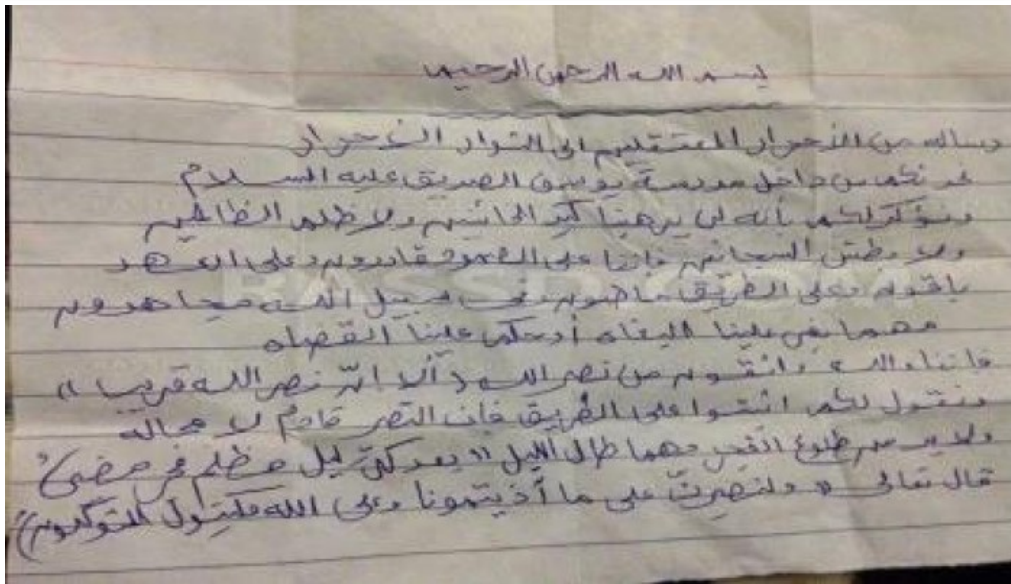 بسم الله الرحمن الرحيم
رسالة من الأحرار المعتقلين الى الثوار الاحرار
من داخل مدرسة يوسف الصديق عليه السلام
ونؤكد لكم بأنه لن يرهبنا كيد الخائنين ولا ظلم الظالمين
ولا بطش السجانين فإننا على الصمود قادرون وعلى العهد
باقون وعلى الطريق ماضون وفي سبيل الله مجاهدون
مهما بغى علينا البغاه أو حكم علينا القضاه
فإننا والله واثقون من نصر الله « ألا إنّ نصر الله قريب »
ونقول لكم اثبتوا على الطريق فإن النصر قادم لا محاله
ولابد من طلوع الفجر مهما طال الليل " بعد كل ليل مظلم فجر مضئ "
قال تعالى « ولنصبرنّ على ما آذيتمونا وعلى الله فليتوكل المتوكلون »